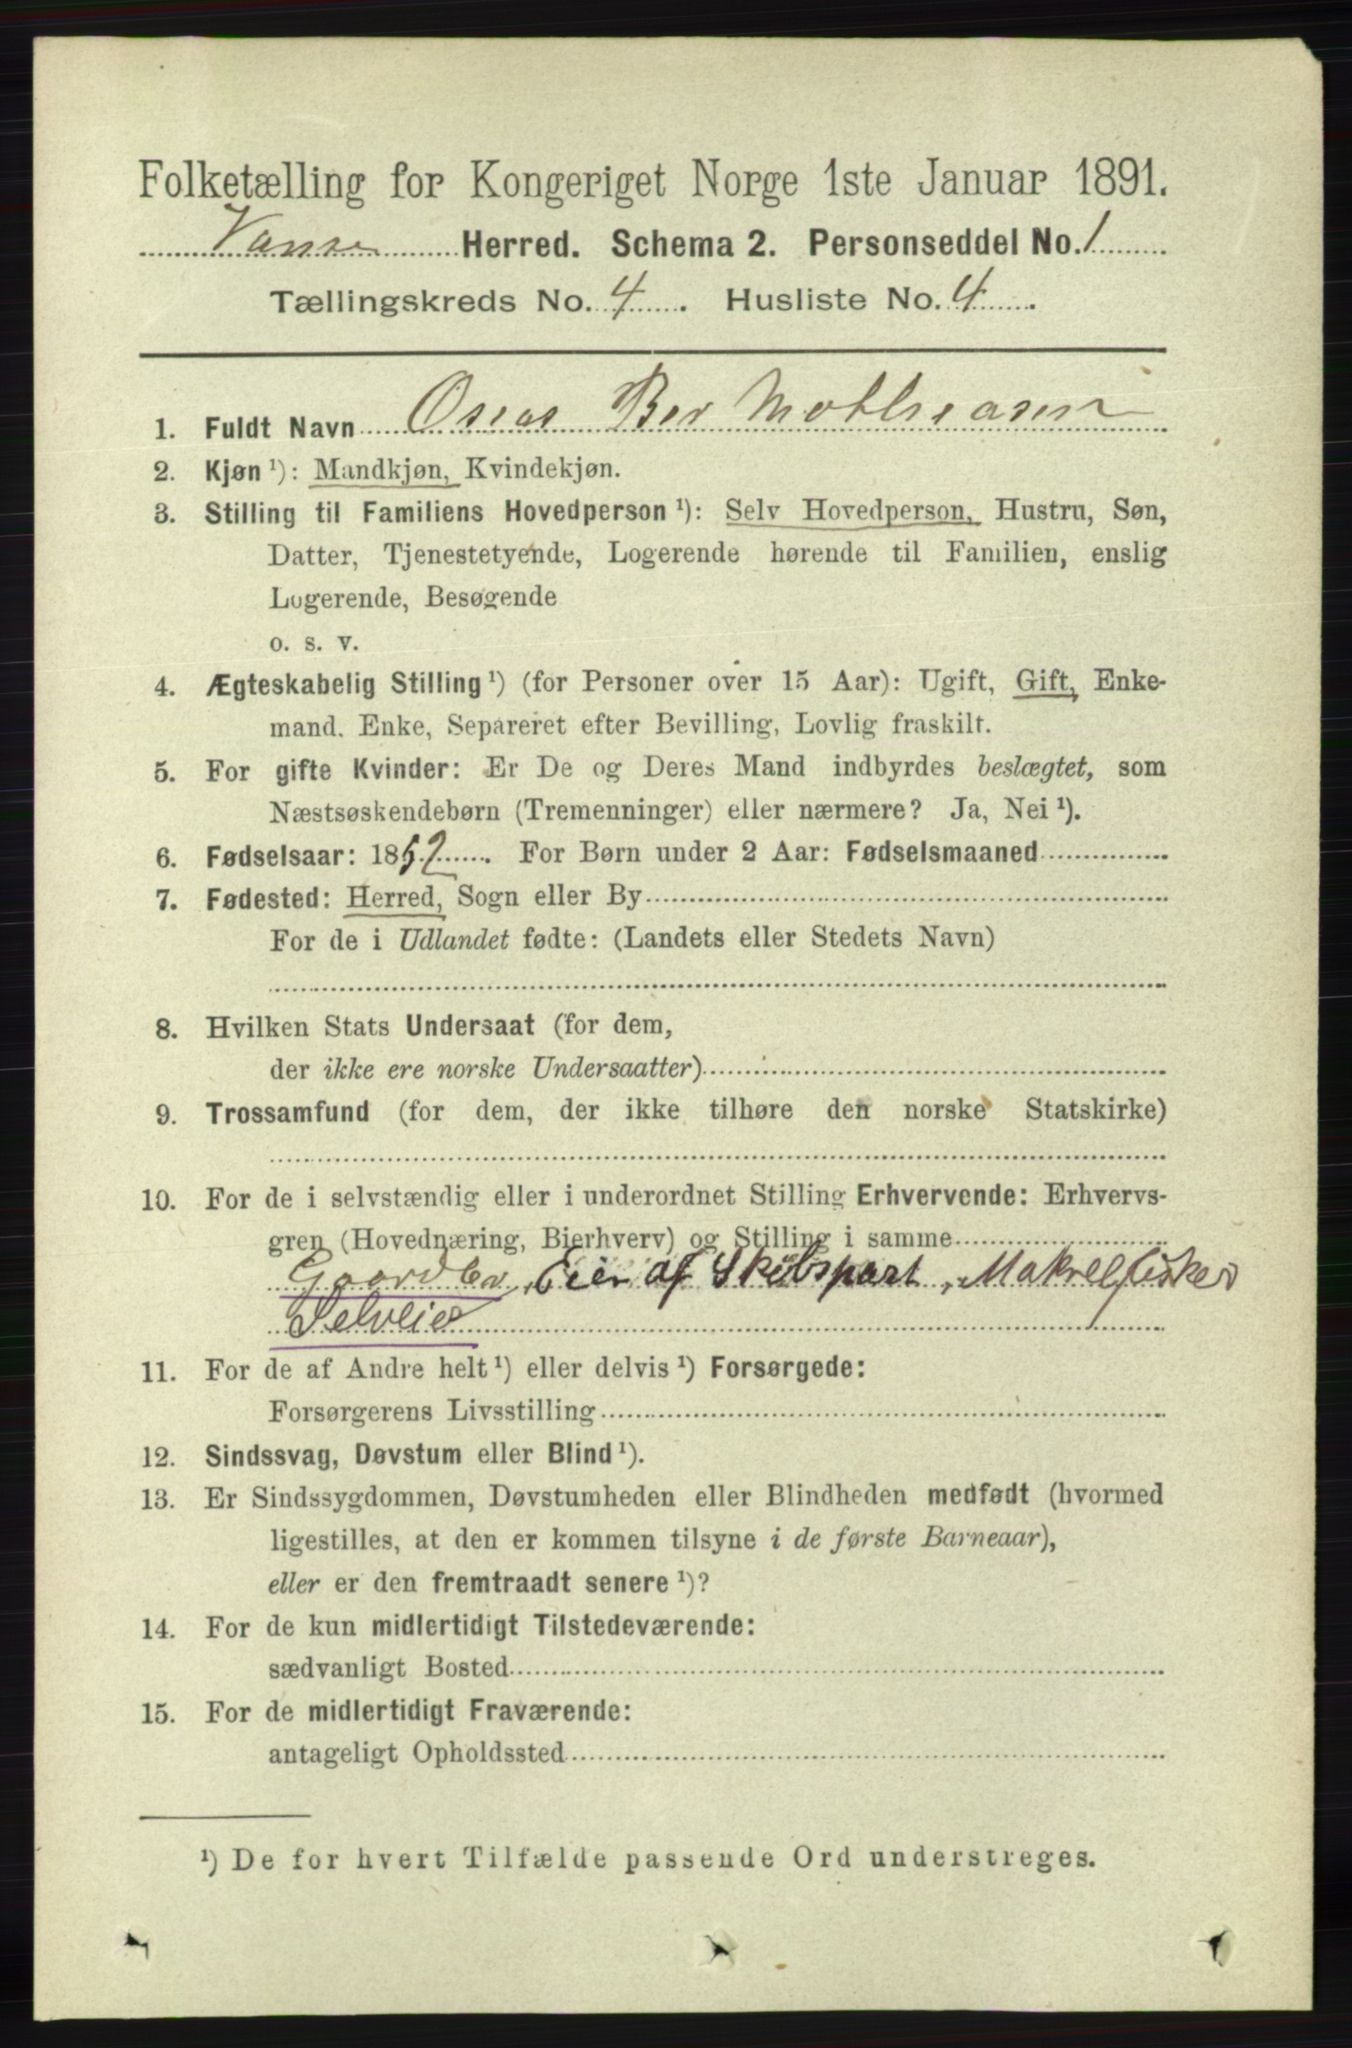 Folketælling for Kongeriget Norge 1ste Januar 1891.
Vanse Herred. Schema 2. Personseddel No. 1
Tællingskreds No. 4. Husliste No. 4.
1. Fuldt Navn Oseas Ber
2. Kjøn ¹): Mandkjøn, Kvindekjøn.
3. Stilling til Familiens Hovedperson ¹): Selv Hovedperson, Hustru, Søn,
Datter, Tjenestetyende, Logerende hørende til Familien, enslig
Logerende, Besøgende
o. s. v.
4. Ægteskabelig Stilling ¹) (for Personer over 15 Aar): Ugift, Gift, Enke-
mand. Enke, Separeret efter Bevilling, Lovlig fraskilt.
5. For gifte Kvinder: Er De og Deres Mand indbyrdes beslægtet, som
Næstsøskendebørn (Tremenninger) eller nærmere? Ja, Nei ¹).
6. Fødselsaar: 1852. For Børn under 2 Aar: Fødselsmaaned
7. Fødested: Herred, Sogn eller By
For de i Udlandet fødte: (Landets eller Stedets Navn)
8. Hvilken Stats Undersaat (for dem,
der ikke ere norske Undersaatter)
9. Trossamfund (for dem, der ikke tilhøre den norske Statskirke)
10. For de i selvstændig eller i underordnet Stilling Erhvervende: Erhvervs-
gren (Hovednæring, Bierhverv) og Stilling i samme
Gaardbr, Eier af Skibspart, Makrelfisker
Selveier
11. For de af Andre helt ¹) eller delvis ¹) Forsørgede:
Forsørgerens Livsstilling
12. Sindssvag, Døvstum eller Blind ¹).
13. Er Sindssygdommen, Døvstumheden eller Blindheden medfødt (hvormed
ligestilles, at den er kommen tilsyne i de første Barneaar),
eller er den fremtraadt senere ¹)?
14. For de kun midlertidigt Tilstedeværende:
sædvanligt Bosted
15. For de midlertidigt Fraværende:
antageligt Opholdssted
¹) De for hvert Tilfælde passende Ord understreges.